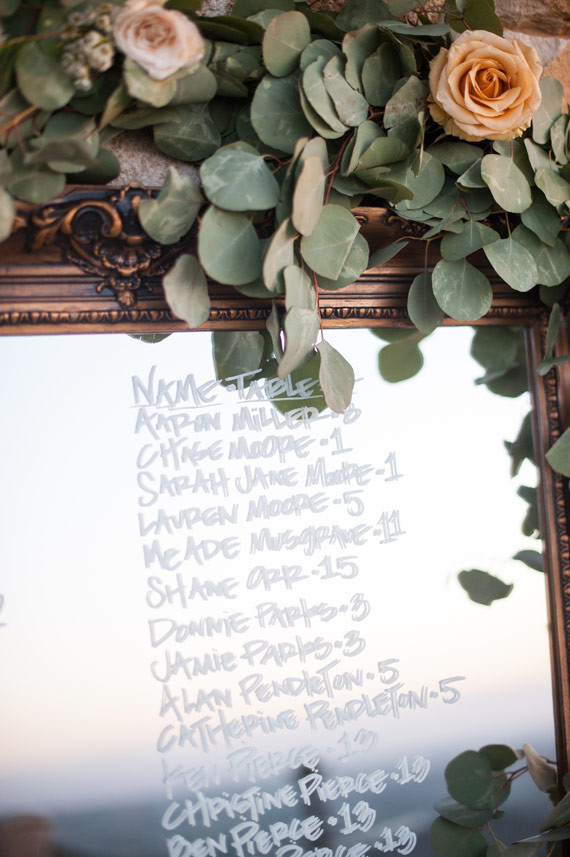 NAME • TABLE
AARON MILLER • 8
CHASE MOORE • 1
SARAH JANE MOORE • 1
LAUREN MOORE • 5
MEADE MUSGRAVE • 11
SHANE ORR • 15
DONNIE PARKS • 3
JAMIE PARKS • 3
ALAN PENDLETON • 5
CATHERINE PENDLETON • 5
KEN PIERCE • 13
CHRISTINE PIERCE • 13
BEN PIERCE • 13
PIERCE • 13